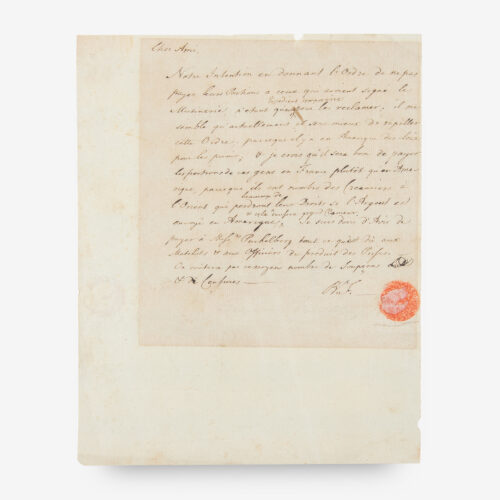 Cher Ami.
Notre Intention en donnant l'Ordre de ne pas
payer leurs Portions a ceux qui avoient signé la
Mutinerie, n'étant que pour les reclamer, il me
semble qu'actuellement il sera mieux de rapeller
cette Ordre, parcequ'il y a en Amerique des loix
pour les punir; & je crois qu'il sera bon de payer
les portions de ces gens en France plutôt qu'en Ame-
rique, parceque ils ont nombre des Creanciers à
l'Orient qui perdront leur Droits si l'Argent est
envoyé en Amerique, Je suis donc d'Avis de
payer à Mess.rs Puchelberg tout ce qu'est dû aux
Matelots & aux Officiers du produit des Prises.
On evitera par ce moyen nombre de
& de
B. F.